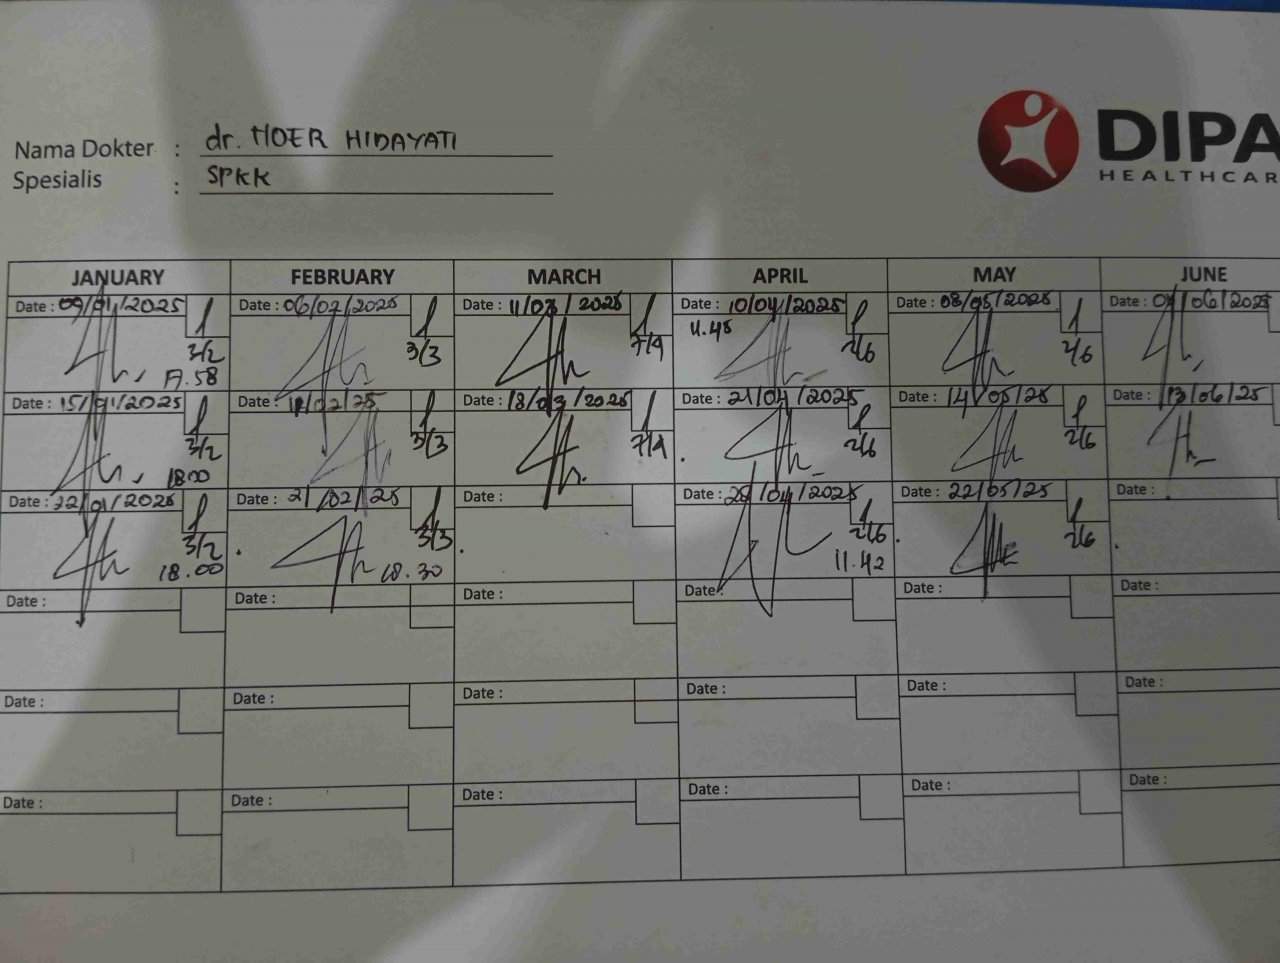 dr. NOER HIDAYATI
Nama Dokter :
SPKK
Spesialis :
DIPA
HEALTHCAR
JANUARY FEBRUARY MARCH APRIL MAY JUNE
Date : 09/01/2025 Date : 06/02/2025 Date : 11/03/2025 Date : 10/04/2025 Date : 08/05/2025 Date : /06/2025
11.45
3/2 3/3 7/4 2/6 2/6
17.58
Date : 15/01/2025 Date : /02/25 Date : 18/03/2025 Date : 21/04/2025 Date : 14/05/25 Date : 13/06/25
3/2 3/3 7/4 2/6 2/6
18.00
Date : 22/01/2025 Date : 21/02/25 Date : Date : /04/2025 Date : 22/05/25 Date :
3/2 3/3 2/6 2/6
18.00 18.30 11.42
Date : Date : Date : Date : Date : Date :
Date : Date : Date : Date : Date : Date :
Date : Date : Date : Date : Date : Date :